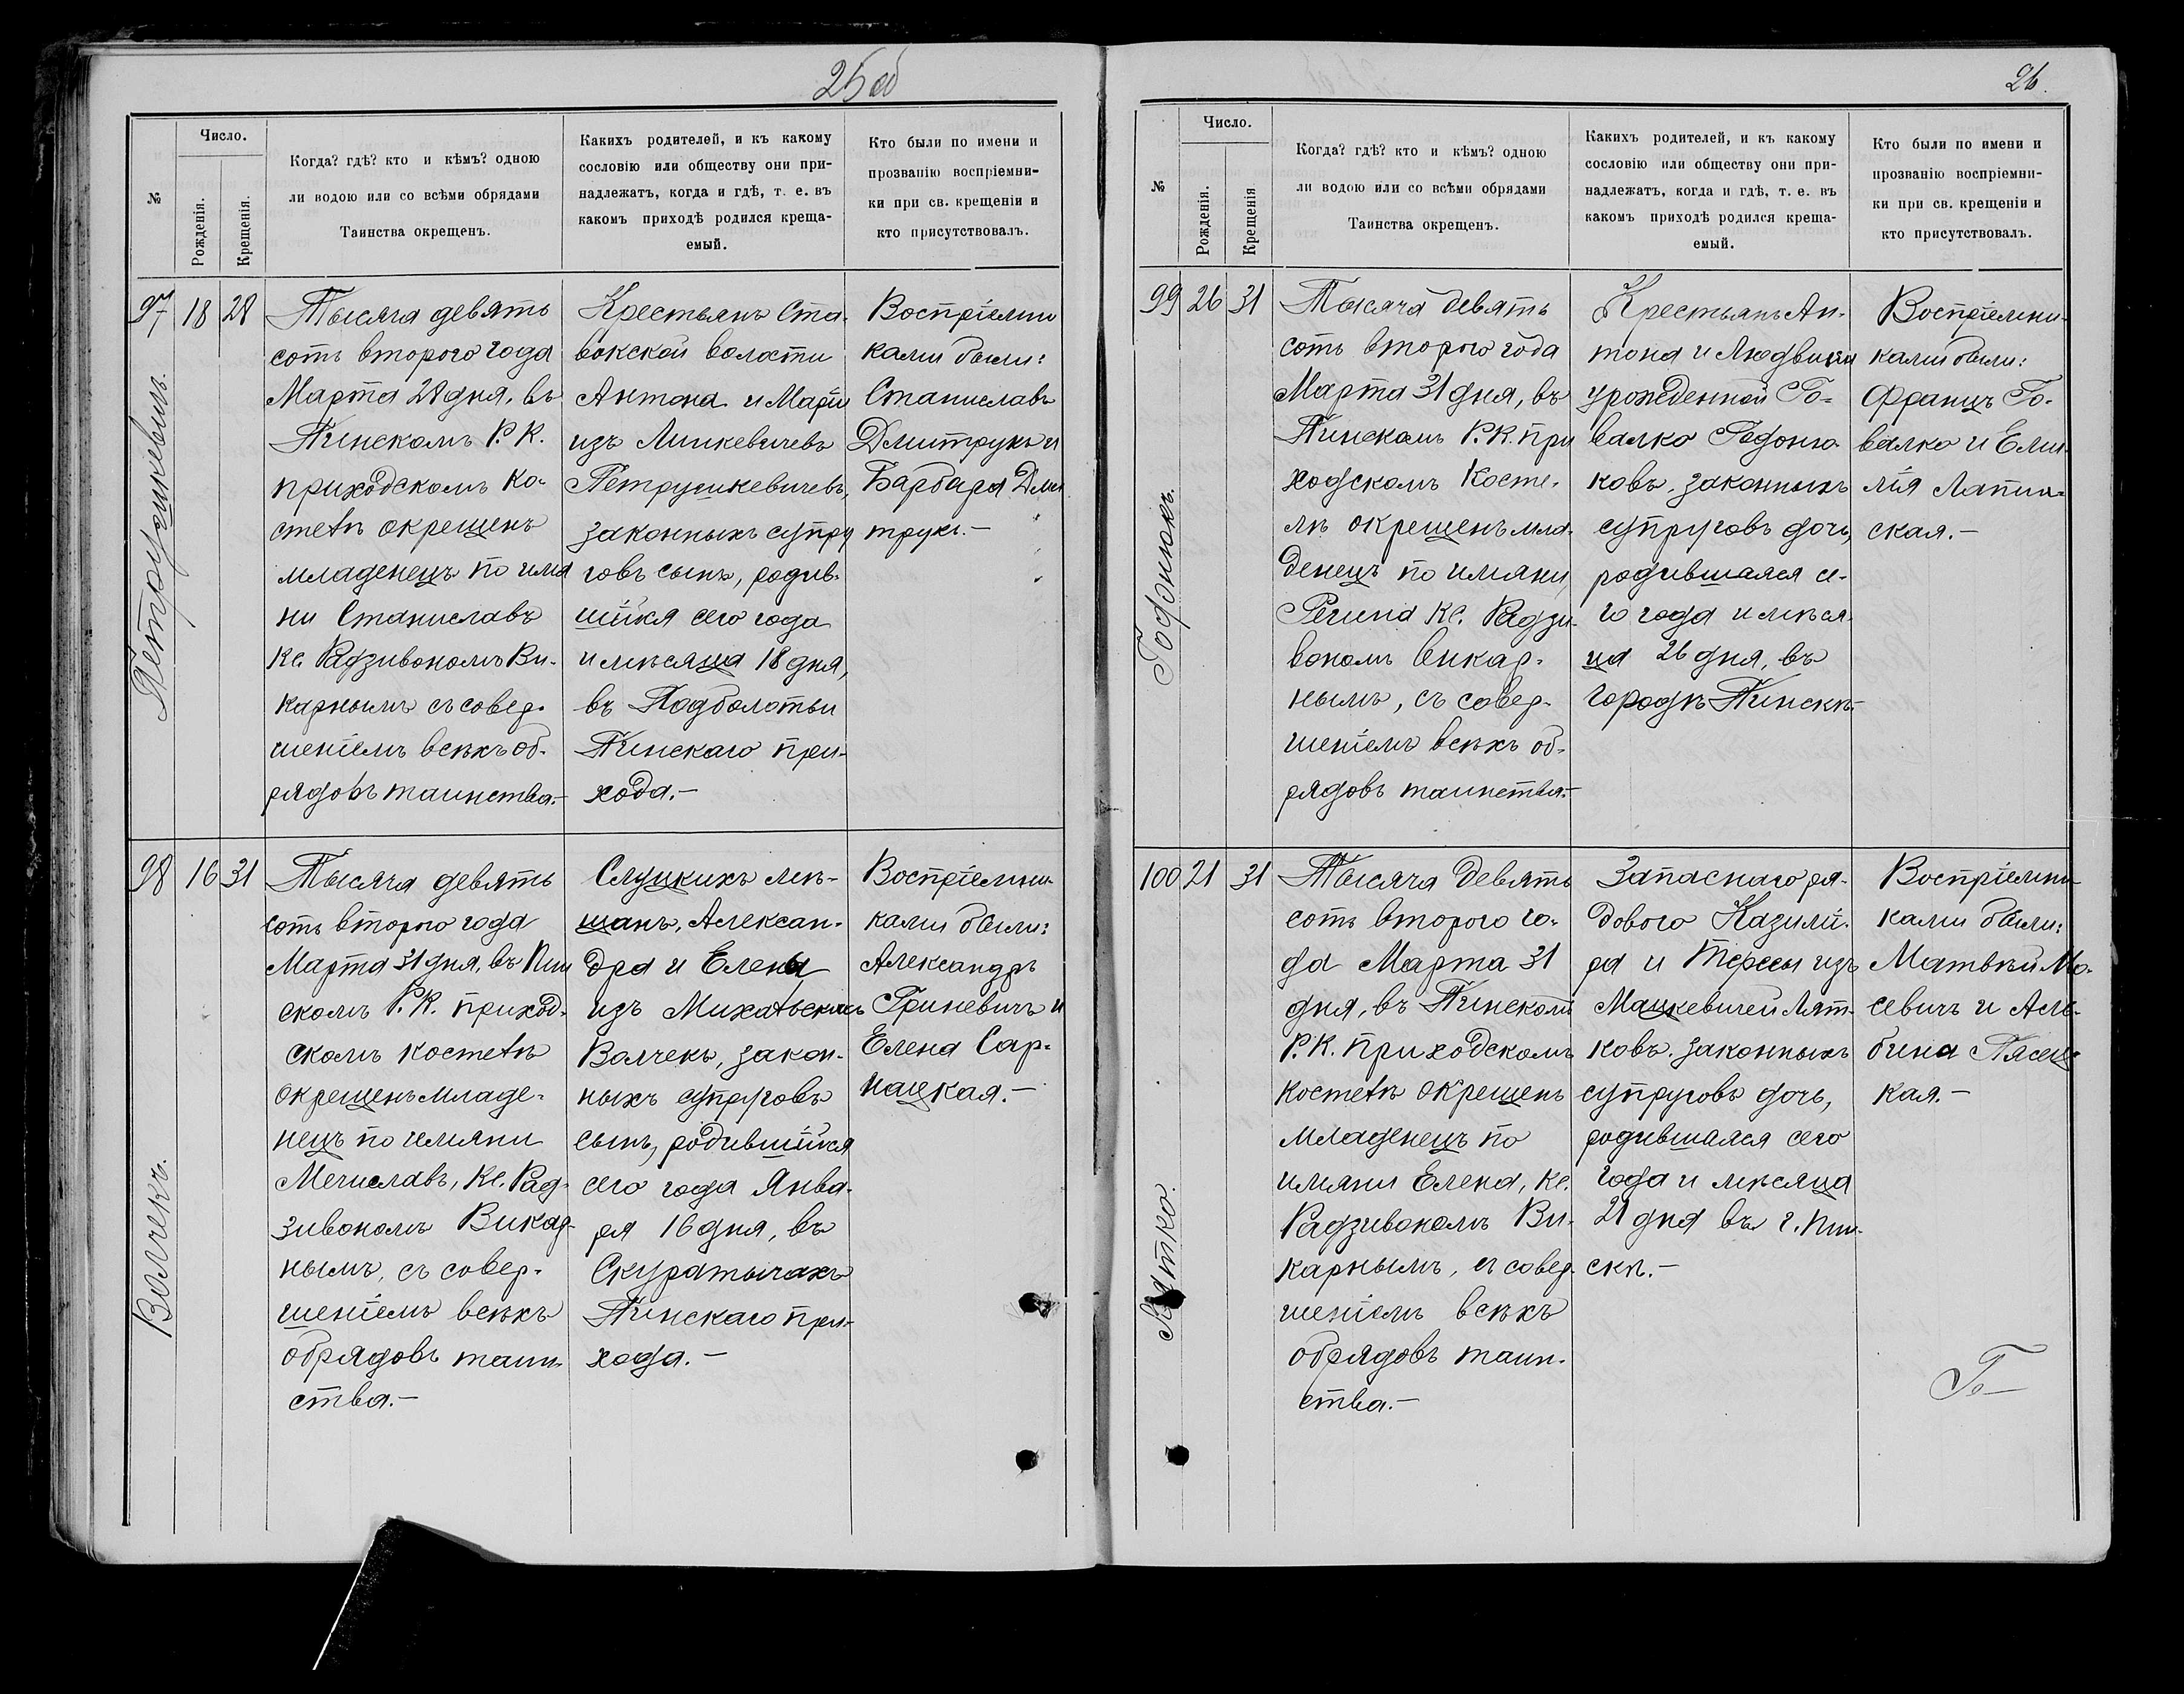 25 об
Число.
№
Рожденія.
Крещенія.
Когда? гдѣ? кто и кѣмъ? одною
ли водою или со всѣми обрядами
Таинства окрещенъ.
Какихъ родителей, и къ какому
сословію или обществу они при-
надлежатъ, когда и гдѣ, т. е. въ
какомъ приходѣ родился креща-
емый.
Кто были по имени и
прозванію воспріемни-
ки при св. крещеніи и
кто присутствовалъ.
97 18 28
Петрушкевичъ.
Тысяча девять
сотъ второго года
Марта 28 дня, въ
Пинскомъ Р. К.
приходскомъ ко-
стелѣ окрещенъ
младенецъ по имя
ни Станиславъ
Кс. Радзивономъ Ви-
карнымъ съ совер-
шеніемъ всѣхъ об-
рядовъ таинства.-
Крестьянъ Ста-
вокской волости
Антона и Маріи
изъ Линкевичевъ
Петрушкевичевъ,
законныхъ супру
говъ сынъ, родив-
шійся сего года
и мѣсяца 18 дня,
въ Подболотьи
Пинскаго при-
хода.-
Воспріемни
ками были:
Станиславъ
Дмитрукъ и
Барбара Дми
трукъ.-
98 16 31
Волчекъ.
Тысяча девять
сотъ второго года
Марта 31 дня, въ Пин
скомъ Р. К. приход-
скомъ костелѣ
окрещенъ младе-
нецъ по имяни
Мечиславъ, Кс. Рад-
зивономъ Викар-
нымъ, съ совер-
шеніемъ всѣхъ
обрядовъ таин-
ства.-
Слуцкихъ мѣ-
щанъ, Алексан-
дра и Елены
изъ Михальскихъ
Волчекъ, закон-
ныхъ супруговъ
сынъ, родившійся
сего года Янва-
ря 16 дня, въ
Скуратычахъ
Пинскаго при-
хода.-
Воспріемни-
ками были:
Александръ
Гриневичъ и
Елена Сар-
нацкая.-
26.
Число.
№
Рожденія.
Крещенія
Когда? гдѣ? кто и кѣмъ? одною
ли водою или со всѣми обрядами
Таинства окрещенъ.
Какихъ родителей, и къ какому
сословію или обществу они при-
надлежатъ, когда и гдѣ, т. е. въ
какомъ приходѣ родился креща-
емый.
Кто были по имени и
прозванію воспріемни-
ки при св. крещеніи и
кто присутствовалъ.
99 26 31
Тысяча девять
сотъ второго года
Марта 31 дня, въ
Пинскомъ Р. К. при
ходскомъ Косте-
лѣ окрещенъ мла-
денецъ по имяни
Регина Кс. Радзи-
вономъ Викар-
нымъ, съ совер-
шеніемъ всѣхъ об-
рядовъ таинства.-
Крестьянъ Ан-
тона и Людвики
урожденной Го-
валко Годоню-
ковъ, законныхъ
супруговъ дочь,
родившаяся се-
го года и мѣся-
ца 26 дня, въ
городѣ Пинскѣ.-
Воспріемни-
ками были:
Францъ Го-
валко и Еми-
лія Лапин-
ская.-
100 21 31
Лятко.
Тысяча девять
сотъ второго го-
да Марта 31
дня, въ Пинскомъ
Р. К. приходскомъ
костелѣ окрещенъ
младенецъ по
имяни Елена, Кс.
Радзивономъ Ви-
карнымъ, съ совер-
шеніемъ всѣхъ
обрядовъ таин-
ства.-
Запаснаго ря-
дового Казими-
ра и Терессы изъ
Мацкевичей Лят-
ковъ, законныхъ
супруговъ дочь,
родившаяся сего
года и мѣсяца
21 дня въ г. Пин-
скѣ.-
Воспріемни-
ками были:
Матвѣй Мо-
севичъ и Аль-
бина Пясец-
кая.-